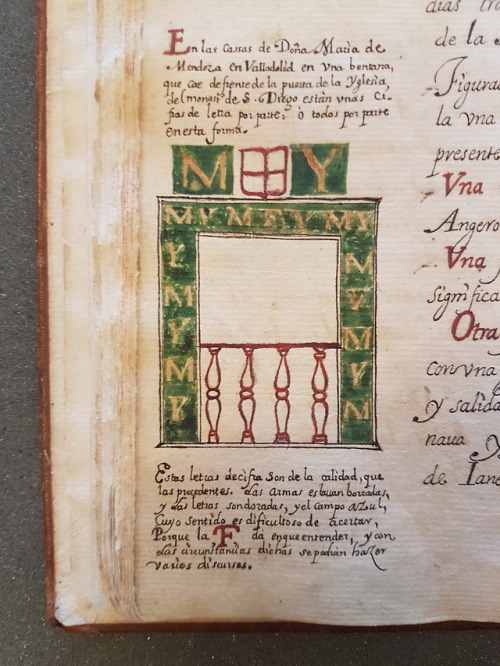 En las cassas de Doña Maria de
Mendoza en Valladolid en vna bentana,
que cae de frente de la puerta de la Yglesia,
del monastº de S. Diego están vnas Ci-
fras de letra por parte; ò todas por parte
en esta forma.
M Y
M Y M F Y M Y
Y
M
Y
M
Y
M
Y
M
Y
M
Estas letras de cifra son de la calidad, que
las precedentes. Las armas estauan borradas,
y las letras son doradas, y el campo azul,
Cuyo sentido es dificultoso de acertar,
Porque la F dà en que entender, y con
las circunstancias dichas se podràn hazer
varios discursos.
dias
de la
Figura
la vna
presente
Vna
Angero
Vna
significa
Otra
con vna
y salida
naua y
de Iane